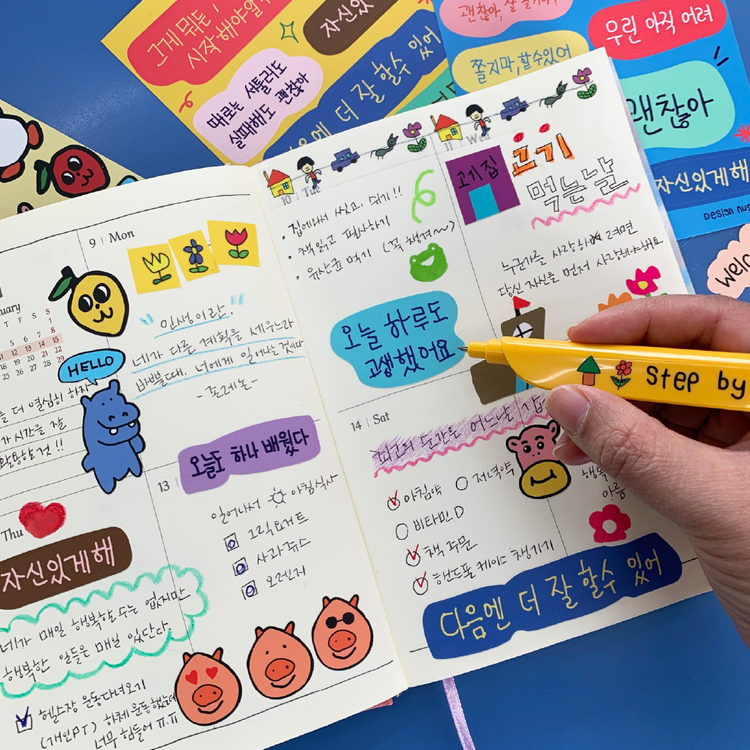 그게 뭐든!
시작해야알
자신있
때로는 서툴러도
실패해도 괜찮아
다음엔 더 잘 할수 있어
괜찮아, 잘 할거야!
우린 아직 어려
쫄지마, 할수있어
괜찮아
자신있게해
Design nus
welc
9 Mon
10 Tue
11 Wed
uary
T F S
8
11 12 13 14 15
HELLO
를 더 열심히 하자
가 시간을 잘
활용할 것!!
"인생이란"
네가 다른 계획을 세우느라
바쁠 때, 너에게 일어나는 것이다
- 존레논 -
집에와서 씻고, 쉬기!!
책 읽고 필사하기
유산균 먹기 (꼭 챙겨~)
고기집
고기
먹는 날
누군가를 사랑하려면
당신 자신을 먼저 사랑해야해요
오늘 하루도
고생했어요
Step by
Thu
자신있게해
네가 매일 행복할 수는 없지만
행복한 일들은 매일 있단다
헬스장 운동다녀오기
(개인PT) 하체 운동했는데
너무 힘들어 ㅠ.ㅠ
13
오늘도 하나 배웠다
일어나서 아침식사
그릭요거트
사과쥬스
오렌지
14 Sat
최고의 순간은 어느날
아침약
저녁약
비타민D
책 주문
핸드폰 케이스 챙기기
행복
아름
다음엔 더 잘 할수 있어